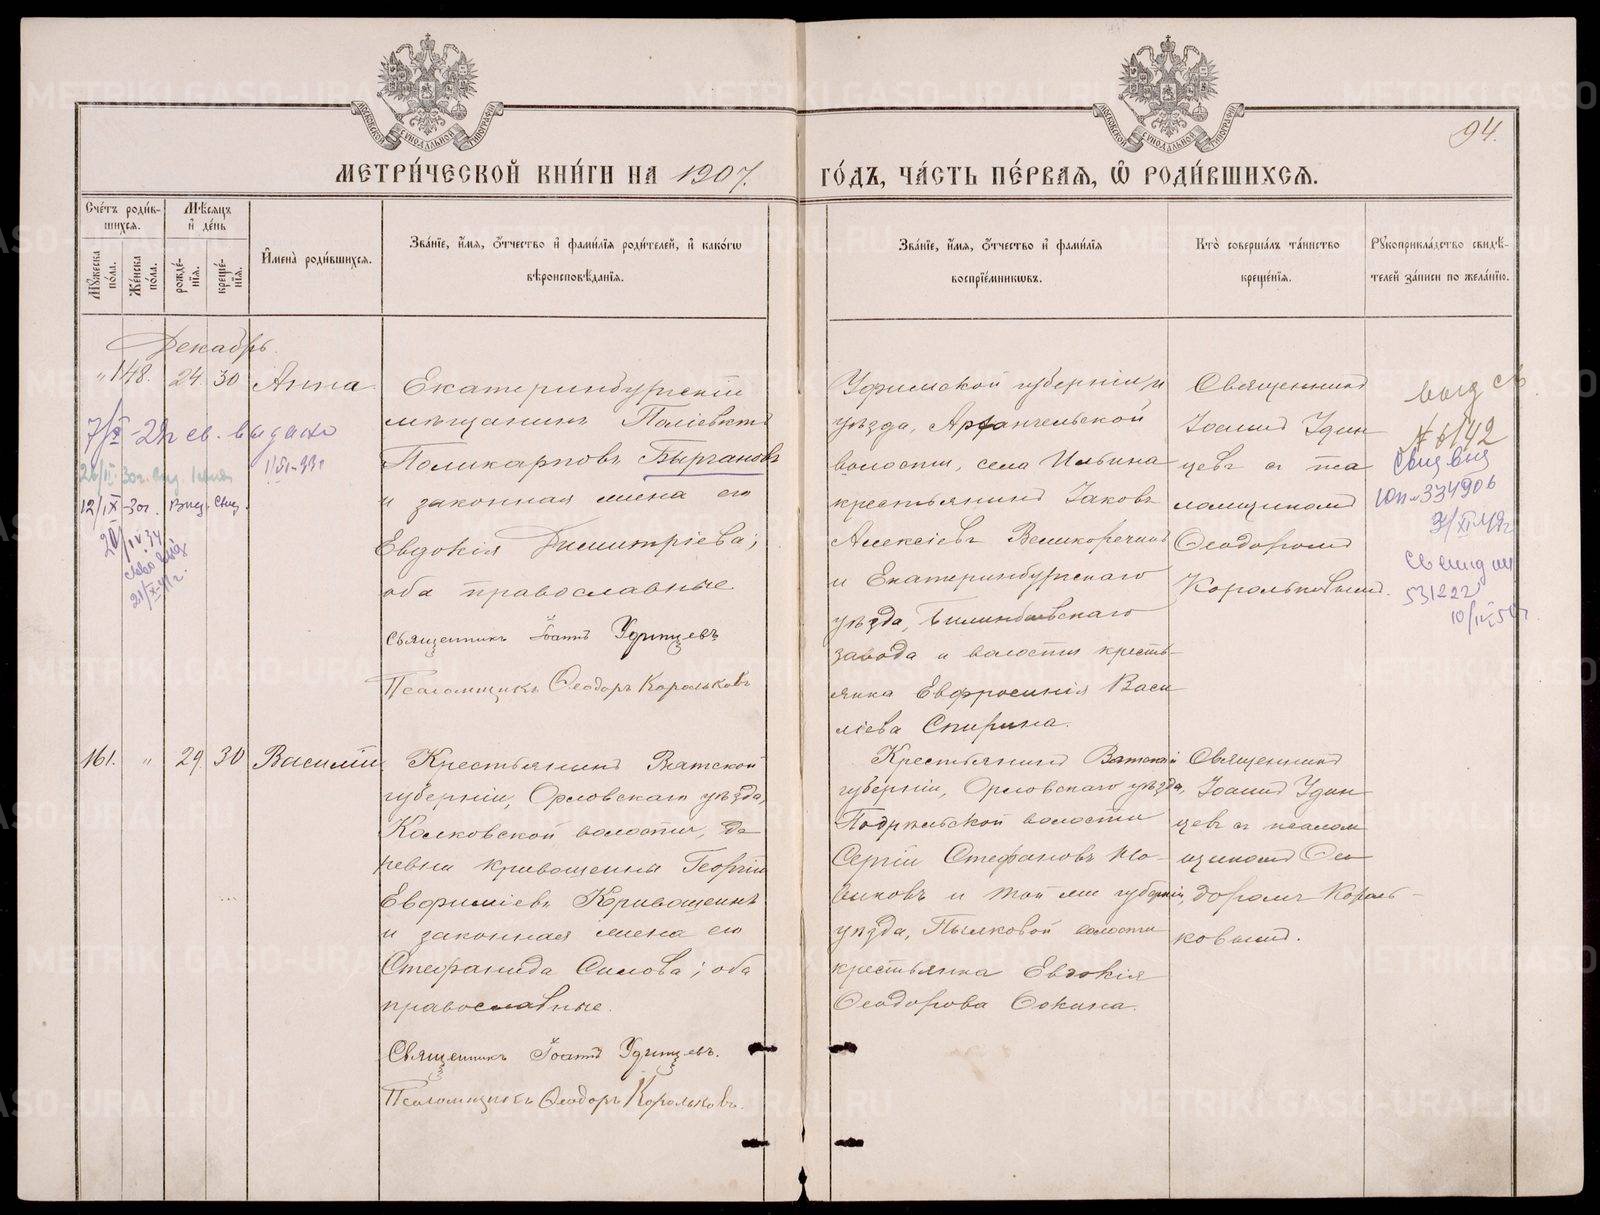 МЕТРИ́ЧЕСКОЙ КНИ́ГИ НА 1907.
ГО́ДЪ, ЧА́СТЬ ПЕ́РВАѦ, Ѿ РОДИ́ВШИХСѦ.
94.
Сче́тъ роди́в-
шихся.
Мѣ́сяцъ
и҆ де́нь
Мꙋ́жеска по́ла.
Же́нска по́ла.
рожде́-
нїѧ.
креще́-
нїѧ.
И҆мена̀ роди́вшихсѧ.
Зва́нїе, и҆́мѧ, ѻ҆́тчество и҆ фами́лїѧ роди́телей, и҆ како́гѡ
вѣроисповѣ́данїѧ.
Зва́нїе, и҆́мѧ, ѻ҆́тчество и҆ фами́лїѧ
воспрїе́мникѡвъ.
Кто̀ соверша́лъ та́инство
креще́нїѧ.
Рꙋкоприкла́дство свидѣ́-
телей за́писи по жела́нїю.
Декабрь
" 148. 24. 30 Анна
Екатеринбургскій
мѣщанинъ Поліевктъ
Поликарповъ Бырганов
и законная жена его
Евдокія Димитріева;
оба православные
Священникъ Іоаннъ Удинцевъ
Псаломщикъ Ѳеодоръ Корольковъ
Уфимской губерніи и
уѣзда, Архангельской
волости, села Ильина
крестьянинъ Іаковъ
Алексіевъ Великоречинъ
и Екатеринбургскаго
уѣзда, Билимбаевскаго
завода и волости кресть-
янка Евфросинія Васи
ліева Спирина.
Священникъ
Іоаннъ Удин
цевъ съ пса
ломщикомъ
Ѳеодоромъ
Корольковымъ.
7/X 29г св. выдано
12/IX-30г. Выд. Свид.
выд св
№ 1142
Свид выд
334906
7/XI-49г
531222
161. " 29. 30 Василій
Крестьянинъ Вятской
губерніи, Орловскаго уѣзда,
Колковской волости, де
ревни Кривошеины Георгій
Евфиміевъ Кривошеинъ
и законная жена его
Стефанида Силова; оба
православные.
Священникъ Іоаннъ Удинцевъ.
Псаломщикъ Ѳеодоръ Корольковъ.
Крестьянинъ Вятской
губерніи, Орловскаго уѣзда,
Подрельской волости
Сергій Стефановъ Но-
виковъ и той же губерніи,
уѣзда, Пылковой волости
крестьянка Евдокія
Ѳеодорова Сокина.
Священникъ
Іоаннъ Удин
цевъ съ псалом
щикомъ Ѳео
доромъ Король-
ковымъ.
METRIKI.GASO-URAL.RU